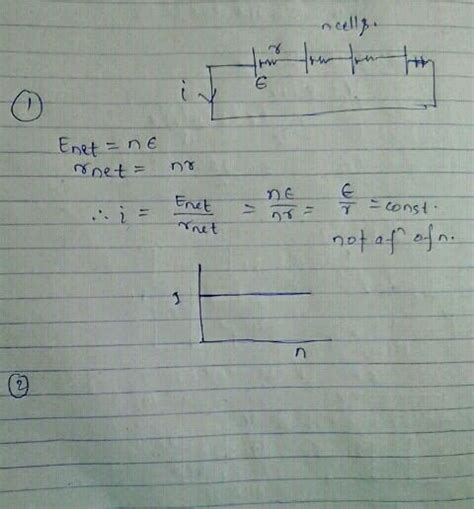 n cells.
r
①
i
ε
Enet = nε
rnet = nr
∴ i = Enet/rnet = nε/nr = ε/r = const.
not a fⁿ of n.
I
n
②